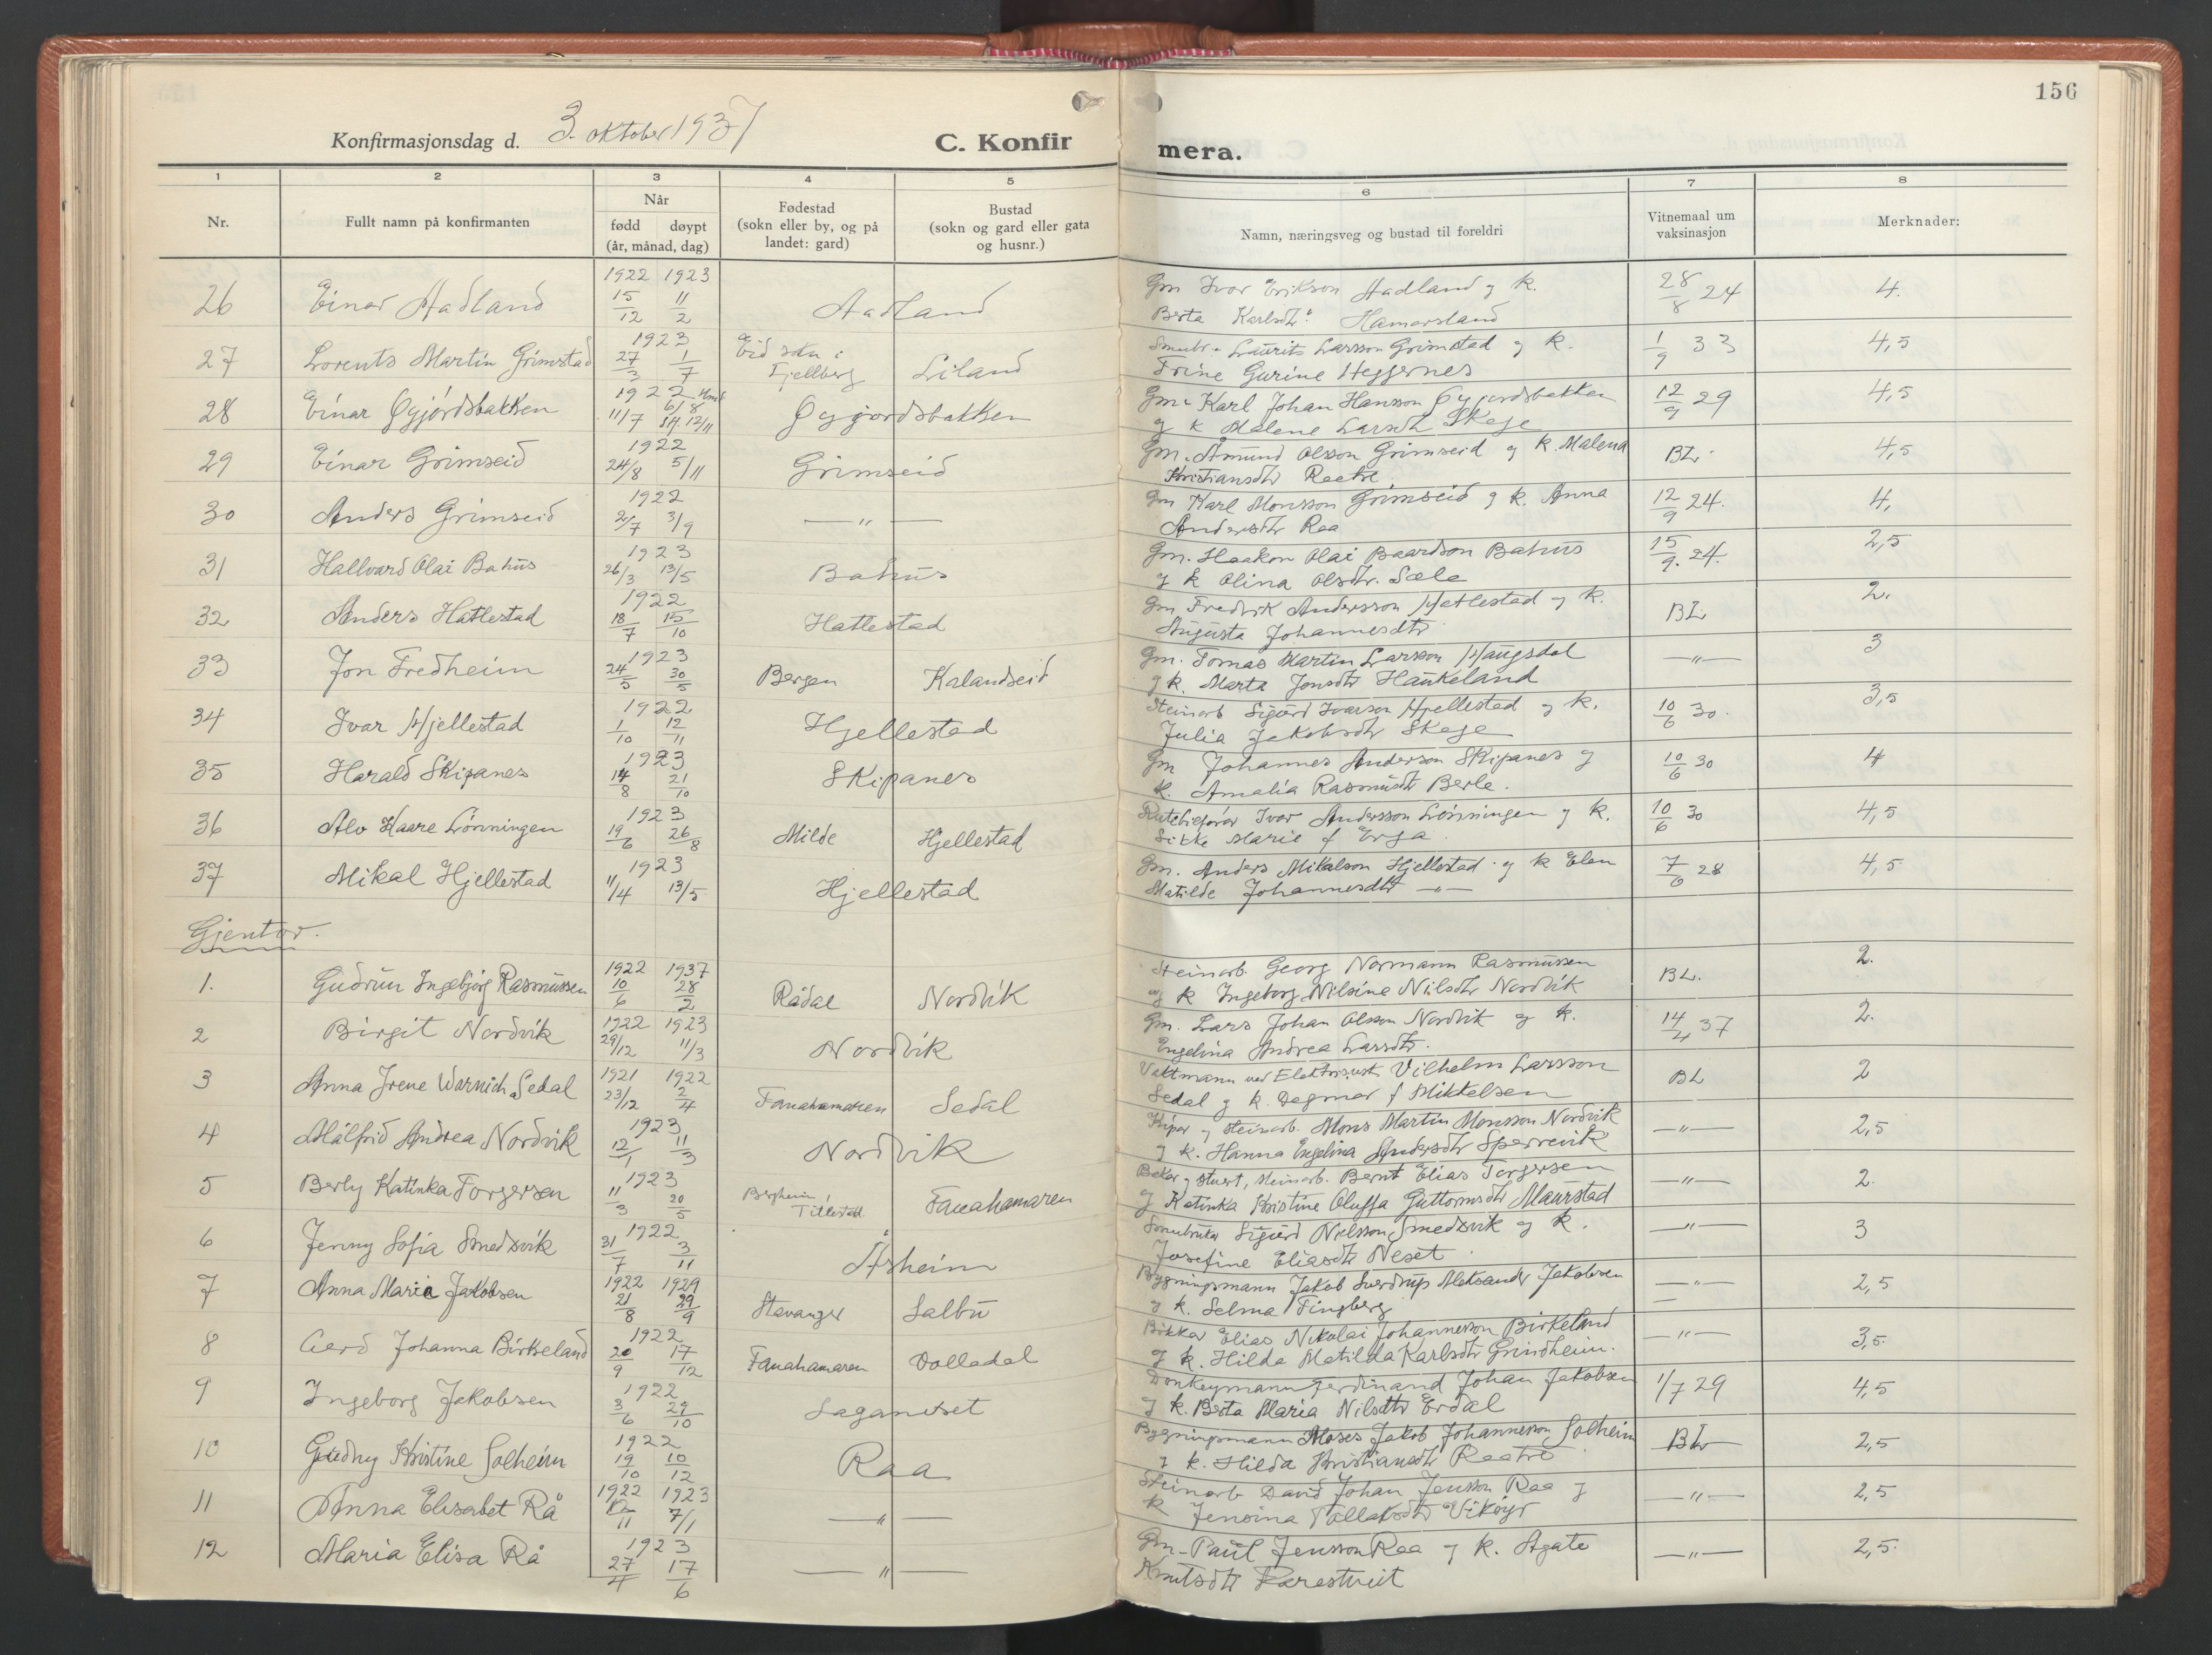 156
Konfirmasjonsdag d. 3. oktober 1937 C. Konfirmera.
1 2 3 4 5 6 7 8
Nr. Fullt namn på konfirmanten Når fødd døypt (år, månad, dag) Fødestad (sokn eller by, og på landet: gard) Bustad (sokn og gard eller gata og husnr.) Namn, næringsveg og bustad til foreldri Vitnemaal um vaksinasjon Merknader:
26 Einar Aadland 1922 15/12 1923 11/2 Aadland Gm Ivar Erikson Aadland og k. 28/8 24 4.
Berta Karlsdtr. Hamarsland
27 Lorents Martin Grimstad 1923 27/3 1/7 Eid sokn i Fjellberg Liland Smubr. Laurits Larsson Grimstad og k. 1/9 33 4,5
Trine Gurine Heggernes
28 Einar Øygjordsbakken 1922 11/7 6/8 12/11 Øygjordsbakken Gm. Karl Johan Hansson Øygjordsbakken 12/9 29 4,5
og k Malene Larsdtr Skage
29 Einar Grimseid 1922 24/8 5/11 Grimseid Gm. Åmund Olsson Grimseid og k. Malena BL. 4,5
Kristiansdtr Raatre
30 Anders Grimseid 1922 2/7 3/9 —"— Gm Karl Monsson Grimseid og k. Anna 12/9 24. 4,
Andersdtr Raa
31 Hallvard Olai Bahus 1923 26/3 13/5 Bahus Gm. Haakon Olai Baardson Bahus 15/9. 24. 2,5
og k Olina Olsdtr. Sæle
32 Anders Hatlestad 1922 18/7 15/10 Hatlestad Gm Fredrik Andersson Hatlestad og k. BL. 2.
Augusta Johannesdtr
33 Jon Fredheim 1923 24/5 30/5 Bergen Kalandseid Gm. Tomas Martin Larsson Haugsdal —"— 3
og k. Marta Jonsdtr Haukeland
34 Ivar Hjellestad 1922 1/10 12/11 Hjellestad Steinarb Sigurd Ivarson Hjellestad og k. 10/6 30. 3,5
Julia Jakobsdtr Skage
35 Harald Skipanes 1923 14/8 21/10 Skipanes Gm Johannes Anderson Skipanes og 10/6 30 4
k. Amalia Rasmusdtr Berle.
36 Alv Kaare Lønningen 1923 19/6 26/8 Milde Hjellestad Rutebileigar Ivar Andersson Lønningen og k. 10/6 30 4,5
Sikke Marie f Erga
37 Mikal Hjellestad 1923 11/4 13/5 Hjellestad Gm. Anders Mikalson Hjellestad og k Elen 7/6 28 4,5
Matilde Johannesdtr —"—
Gjentor.
1. Gudrun Ingebjørg Rasmussen 1922 10/6 1937 28/2 Rådal Nordvik Steinarb. Georg Normann Rasmussen BL. 2.
og k Ingeborg Nilsine Nilsdtr Nordvik
2 Birgit Nordvik 1922 29/12 1923 11/3 Nordvik Gm. Lars Johan Olsson Nordvik og k. 14/4 37 2.
Engelina Andrea Larsdtr.
3 Anna Irene Warnich Sedal 1921 23/12 1922 2/4 Fanahamaren Sedal Vaktmann ved Elektrisitet Vilhelm Larsson BL 2
Sedal og k. Dagmar f Mikkelsen
4 Målfrid Andrea Nordvik 1923 12/1 11/3 Nordvik Skipar og steinarb. Mons Martin Monsson Nordvik —"— 2,5
og k. Hanna Engelina Andersdtr Sperrevik
5 Berly Katinka Torgersen 1923 11/3 20/5 Bergheim, Titlestad Fanahamaren Bakar og stuert, steinarb. Bernt Elias Torgersen —"— 2.
og Katinka Kristine Oluffa Guttormsdtr Maurstad
6 Jenny Sofia Smedsvik 1922 31/7 3/11 Åsheim Smubrukar Sigurd Nielsson Smedsvik og k. —"— 3
Josefine Eliasdtr Neset
7 Anna Maria Jakobsen 1922 21/8 1929 29/9 Stavanger Salbu Bygningsmann Jakob Sverdrup Aleksander Jakobsen —"— 2,5
og k. Selma Tingberg
8 Gerd Johanna Birkeland 1922 20/9 17/12 Fanahamaren Dolladal Bøkkar Elias Nikolai Johannesson Birkeland —"— 3,5.
og k. Hilda Matilda Karlsdtr Grindheim.
9 Ingeborg Jakobsen 1922 3/6 29/10 Laganeset Donkeymann Ferdinand Johan Jakobsen 1/7 29 4,5
og k. Berta Maria Nilsdtr Erdal
10 Gudny Kristine Solheim 1922 19/10 10/12 Raa Bygningsmann Moses Jakob Johannesson Solheim BL 2,5
og k. Hilda Kristiansdtr Raatre
11 Anna Elisabet Rå 1922 12/11 1923 7/1 —"— Steinarb David Johan Jensson Raa og —"— 2,5
k Jensina Tollaksdtr Vikøyr
12 Maria Elisa Rå 1923 27/4 17/6 —"— Gm. Paul Jensson Raa og k. Agate —"— 2,5.
Knutsdtr Farestveit